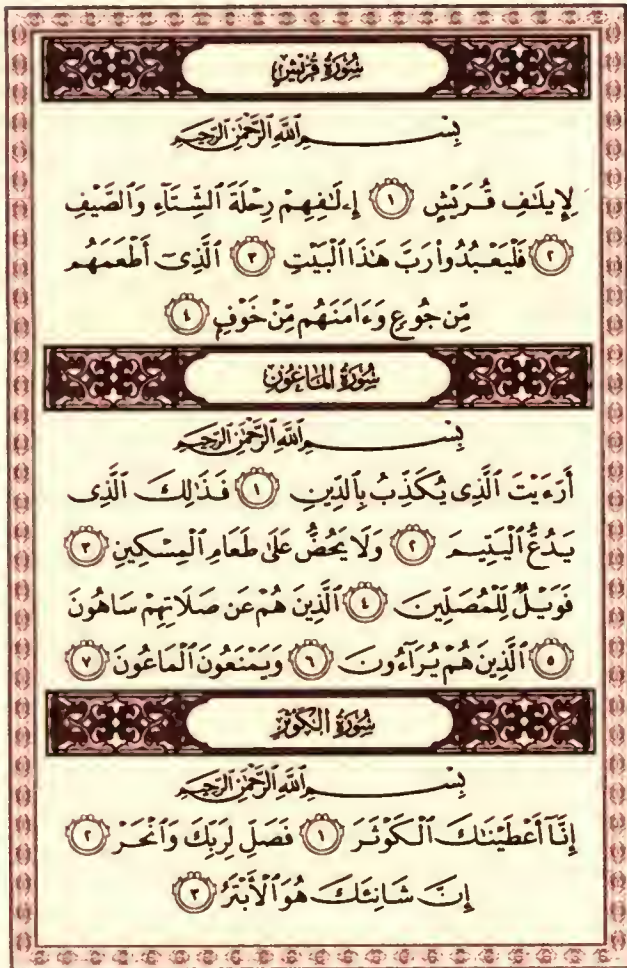 سُورَةُ قُرَيْشٍ
بِسْمِ اللَّهِ الرَّحْمَٰنِ الرَّحِيمِ
لِإِيلَٰفِ قُرَيْشٍ ١ إِۦلَٰفِهِمْ رِحْلَةَ ٱلشِّتَآءِ وَٱلصَّيْفِ
٢ فَلْيَعْبُدُوا۟ رَبَّ هَٰذَا ٱلْبَيْتِ ٣ ٱلَّذِىٓ أَطْعَمَهُم
مِّن جُوعٍ وَءَامَنَهُم مِّنْ خَوْفٍۭ ٤
سُورَةُ المَاعُونِ
بِسْمِ اللَّهِ الرَّحْمَٰنِ الرَّحِيمِ
أَرَءَيْتَ ٱلَّذِى يُكَذِّبُ بِٱلدِّينِ ١ فَذَٰلِكَ ٱلَّذِى
يَدُعُّ ٱلْيَتِيمَ ٢ وَلَا يَحُضُّ عَلَىٰ طَعَامِ ٱلْمِسْكِينِ ٣
فَوَيْلٌ لِّلْمُصَلِّينَ ٤ ٱلَّذِينَ هُمْ عَن صَلَاتِهِمْ سَاهُونَ
٥ ٱلَّذِينَ هُمْ يُرَآءُونَ ٦ وَيَمْنَعُونَ ٱلْمَاعُونَ ٧
سُورَةُ الكَوْثَرِ
بِسْمِ اللَّهِ الرَّحْمَٰنِ الرَّحِيمِ
إِنَّآ أَعْطَيْنَٰكَ ٱلْكَوْثَرَ ١ فَصَلِّ لِرَبِّكَ وَٱنْحَرْ ٢
إِنَّ شَانِئَكَ هُوَ ٱلْأَبْتَرُ ٣